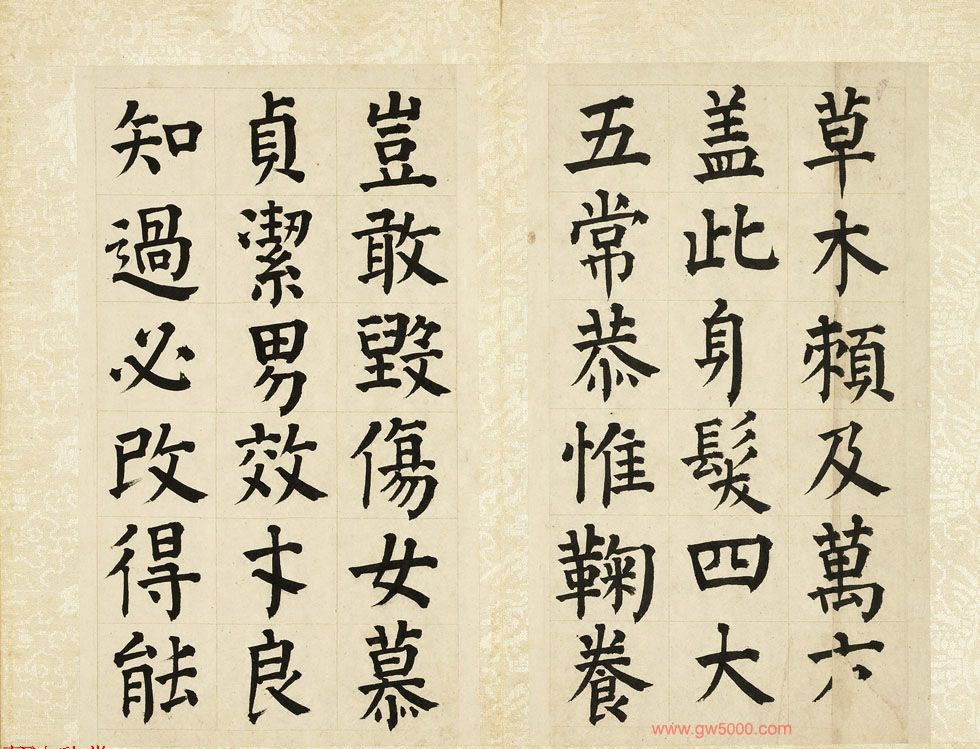 草木賴及萬方
盖此身髮四大
五常恭惟鞠養
豈敢毀傷女慕
貞潔男效才良
知過必改得能
www.gw5000.com